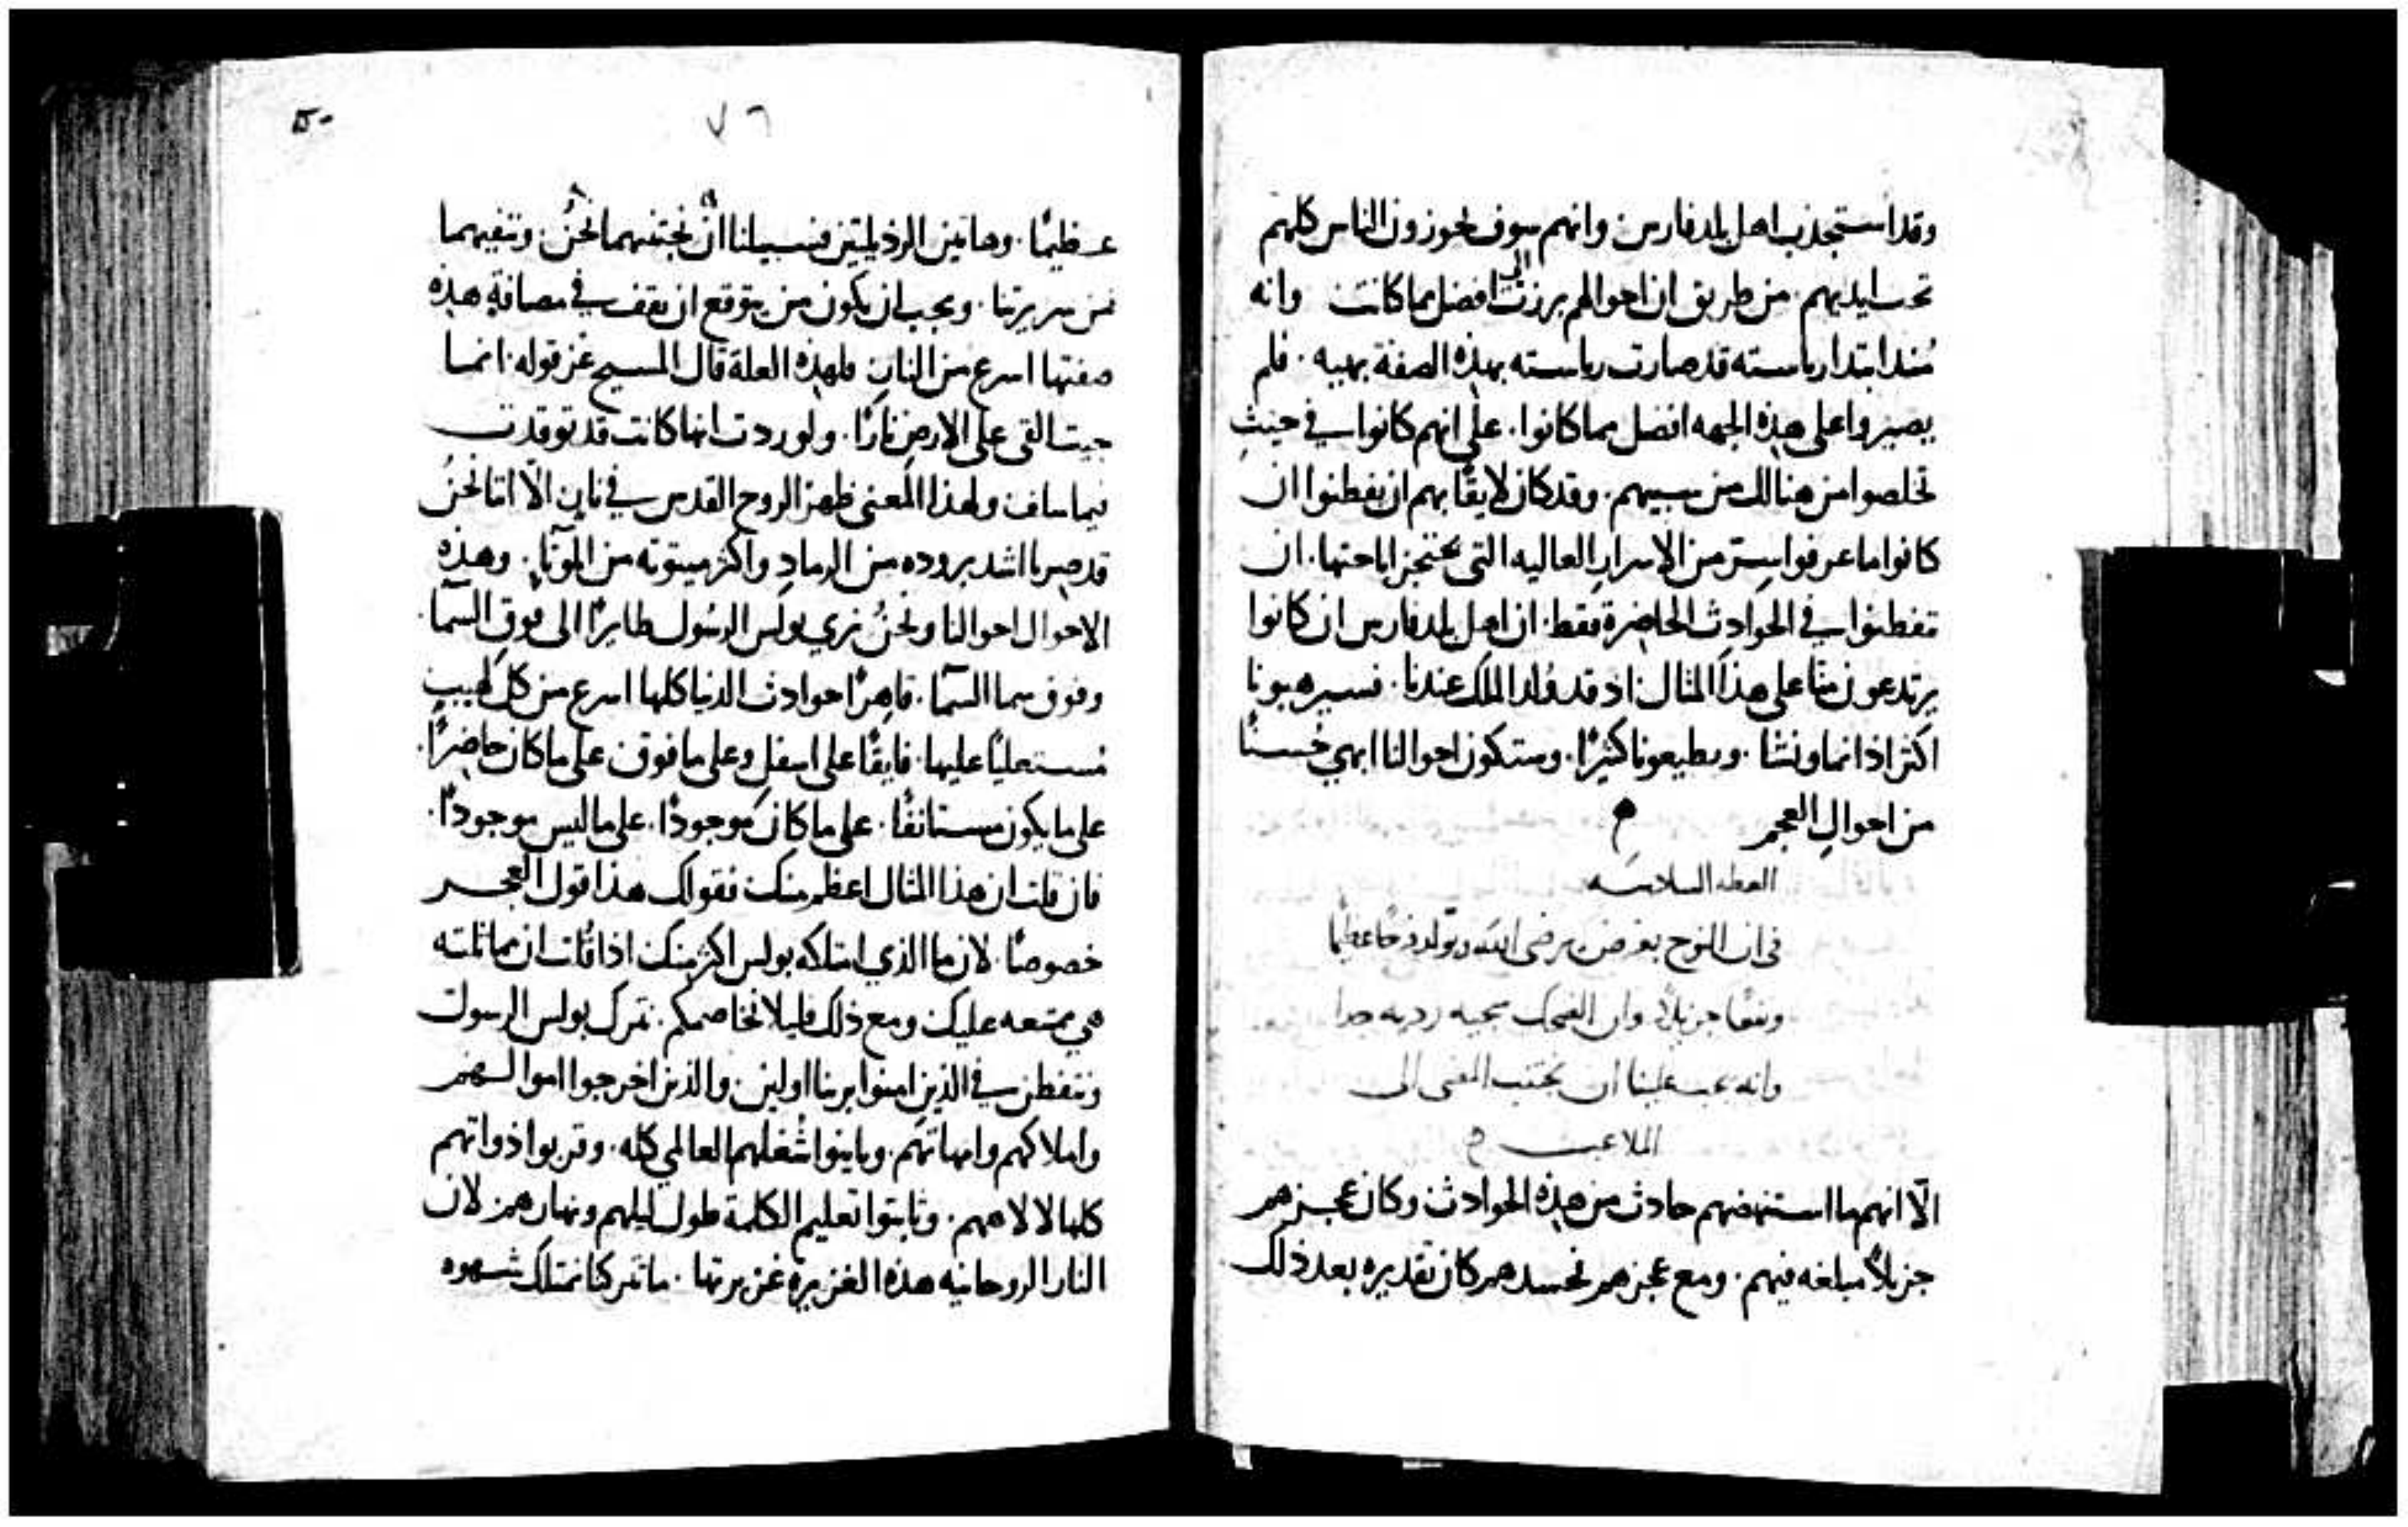 وقد استجذب اهل بلد فارس وانهم سوف يحوزون الناس كلهم
تحت ايديهم. من طريق ان احوالهم برزت الى افضل مما كانت وانه
منذ ابتدا رياسته قد صارت رياسته بهذه الصفة بهيه. فلم
يصيروا على هذه الجهه افضل مما كانوا. على انهم كانوا في حيث
تخلصوا من هنالك من سبيهم. وقد كان لايقًا بهم ان يفطنوا ان
كانوا ما عرفوا ستر من الاسرار العاليه التي يحتجز اباحتها. ان
تفطنوا في الحوادث الحاضرة فقط. ان اهل بلد فارس ان كانوا
يرتدعون منا على هذا المثال اذ قد ولد الملك عندنا. فسيرهبونا
اكثر اذا نما ونشا. ويطيعونا كثيرًا. وستكون احوالنا ابهي حسنًا
من احوال العجم م
العظه السادسه
في ان النوح يعرض برضى الله ويولد فرحًا عظيمًا
ونفعًا جزيلاً وان الضحك سجيه رديه جدا
وانه يجب علينا ان نجتنب المضى الى
الملاعب م
الّا انهم ما استنهضهم حادث من هذه الحوادث وكان عجزهم
جزيلاً مبلغه فيهم. ومع عجزهم تحسدهم كان تقديره بعد ذلك
٧٦
عظيمًا. وهاتين الرذيلتين فسبيلنا ان نجتنبهما نحن. وننفيهما
من سريرتنا. ويجب ان يكون من يتوقع ان يقف في مصافة هذه
صفتها اسرع من النار. فلهذه العلة قال المسيح عز قوله. انما
جيت القى على الارض نارًا. ولوردت انها كانت قد توقدت
فيما سلف ولهذا المعنى ظهر الروح القدس في نار. الّا اننا نحن
قد صرنا اشد بروده من الرماد واكثر ميتوته من الموتا. وهذه
الاحوال احوالنا ونحن نري بولس الرسول طايرًا الى فوق السما.
وفوق سما السما. قاهرًا حوادث الدنيا كلها اسرع من كل لهيب
مستعليًا عليها. فايقًا على اسفل وعلى ما فوق على ما كان حاضرًا.
على ما يكون مستانفًا. على ما كان موجودًا. على ما ليس موجودًا.
فان قلت ان هذا المثال اعظم منك نقولك هذا قول العجز
خصوصًا. لان ما الذي امتلكه بولس اكثر منك اذا قلت ان مماثلته
هي ممتنعه عليك ومع ذلك فليلا نخاصمكم. نترك بولس الرسول
ونتفطن في الذين امنوا بربنا اولين. والذين اخرجوا اموالهم
واملاكهم وامهاتهم. وباينوا شغلهم العالمي كله. وقربوا ذواتهم
كلها لالاههم. وثابتوا تعليم الكلمة طول ليلهم ونهارهم لان
النار الروحانيه هذه الغزيره غزيرتها. ما تتركنا نمتلك شهوه